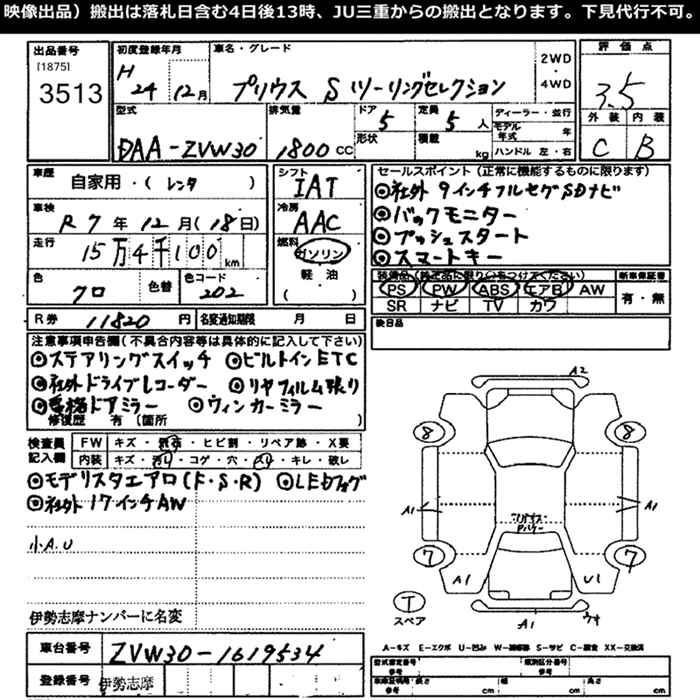 映像出品）搬出は落札日含む4日後13時、JU三重からの搬出となります。下見代行不可。
出品番号 初度登録年月 車名・グレード 2WD・4WD 評価点
[1875] 3513 H 24年 12月 プリウス S ツーリングセレクション 3.5
型式 排気量 ドア 5 定員 5人 ディーラー・並行 外装 内装
DAA-ZVW30 1800cc 形状 積載 kg モデル年式 年 ハンドル 左・右 C B
車歴 自家用・（レンタ ） シフト IAT セールスポイント（正常に機能するものに限ります）
◎社外 9インチフルセグSDナビ
車検 R 7年 12月（18日） 冷房 AAC ◎バックモニター
走行 15万4千100km 燃料 ガソリン ◎プッシュスタート
軽油 ◎スマートキー
色 クロ 色替 色コード 202 （ ）
PS PW ABS エアB AW 新車保証書
SR ナビ TV カワ 有・無
R券 11820円 名変通知期限 月 日 後日品
注意事項申告欄（不具合内容等は具体的に記入して下さい）
◎ステアリングスイッチ ◎ビルトインETC
◎社外ドライブレコーダー ◎リヤフィルム張り
◎電格ドアミラー ◎ウィンカーミラー
修復歴 有（箇所 ）
検査員記入欄 FW キズ・飛石・ヒビ割・リペア跡・X要
内装 キズ・汚れ・コゲ・穴・スレ・キレ・破レ
◎モデリスタエアロ（F・S・R） ◎LEDフォグ
◎社外17インチAW
小A.U
伊勢志摩ナンバーに名変
車台番号 ZVW30-1619534
登録番号 伊勢志摩
A2
8 8
A1 A1
7 7
A1 U1
T スペア A1
A-キズ E-エクボ U-凹み W-補修跡 S-サビ C-腐食 XX-交換済
型式指定番号 参考 類別区分番号 参考
車体証明用・参考 長さ cm 幅 cm 高さ cm